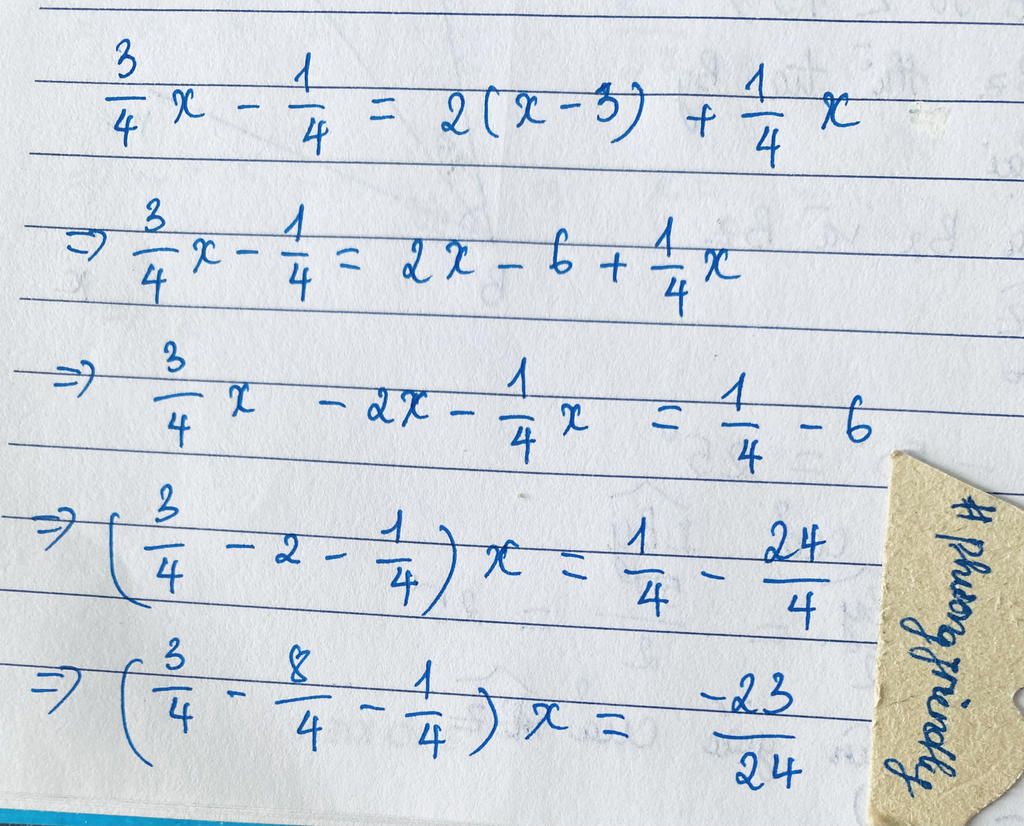 3/4 x - 1/4 = 2(x - 3) + 1/4 x
=> 3/4 x - 1/4 = 2x - 6 + 1/4 x
=> 3/4 x - 2x - 1/4 x = 1/4 - 6
=> (3/4 - 2 - 1/4) x = 1/4 - 24/4
=> (3/4 - 8/4 - 1/4) x = -23/24